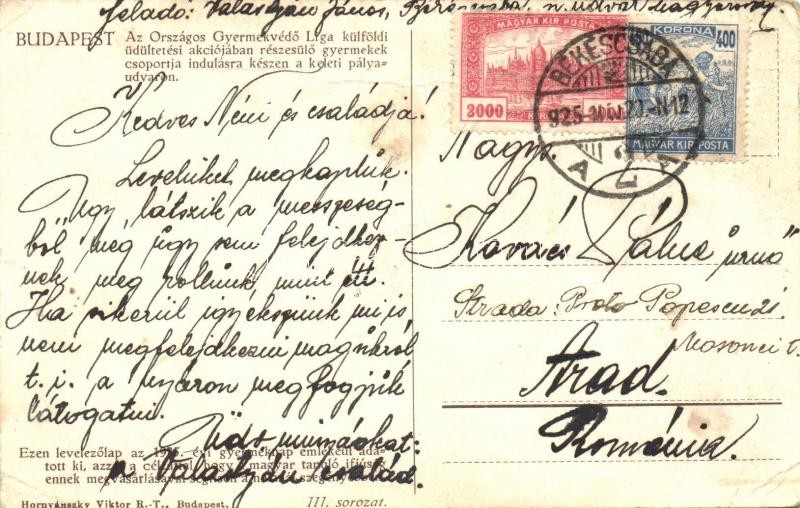 feladó: Valastyán János, Békéscsaba
BUDAPEST Az Országos Gyermekvédő Liga külföldi
üdültetési akciójában részesülő gyermekek
csoportja indulásra készen a keleti pálya-
udvaron.
MAGYAR KIR. POSTA
2000
KORONA 400
MAGYAR KIR. POSTA
BÉKÉSCSABA
925
A 2 A
Kedves Néni és családja!
Levelüket megkaptuk.
Úgy látszik a messzeség-
ből még úgy sem felejdkez-
nek meg rollunk mint itt.
Ha sikerül igyekszünk mi is
nem megfelejdkezni magukról
t. i. a nyáron megfogjuk
látogatni.
Üdv mindnyájokat:
a Valastyán család.
Nagys.
Kovács Pálné úrnő
Strada: Proto Popescu
Mosonci t.
Arad.
Románia.
Ezen levelezőlap az 1925. évi gyermeknap emlékéül ada-
tott ki, azzal a céllal, hogy a magyar tanuló ifjúság
ennek megvásárlásával segítsen a
Hornyánszky Viktor R.-T., Budapest. III. sorozat.